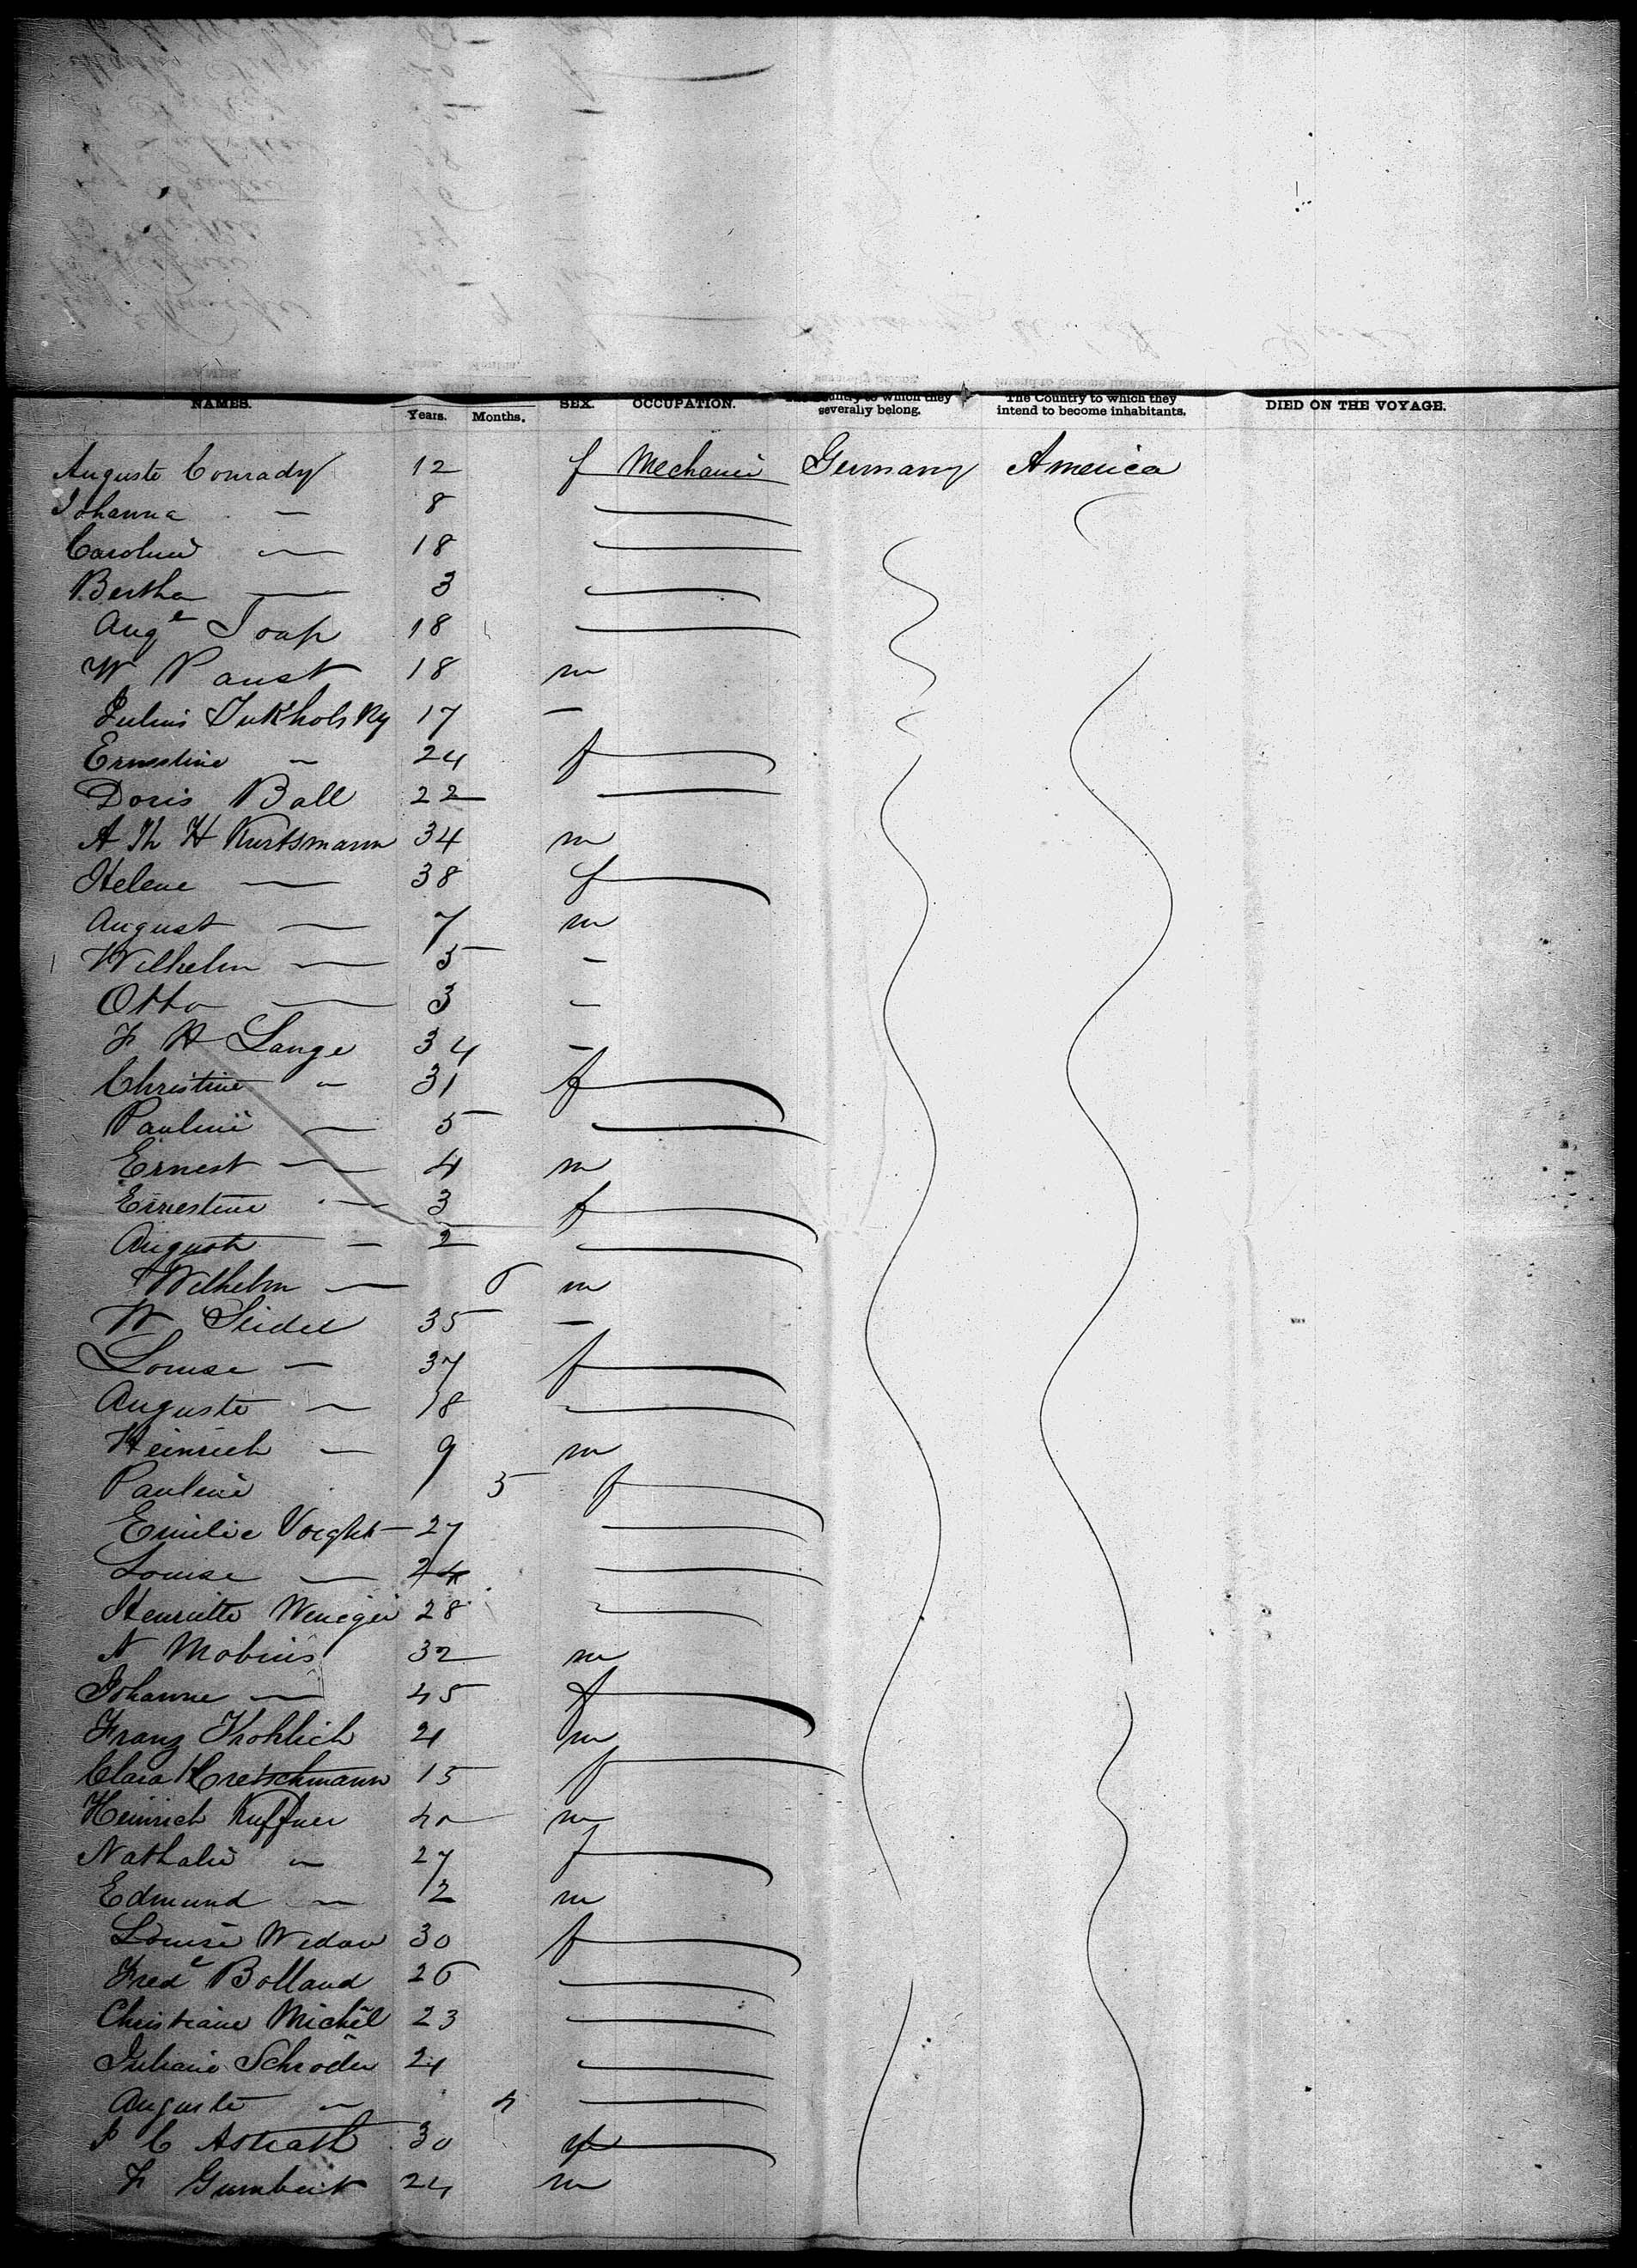 NAMES. Years. Months. SEX. OCCUPATION. The Country to which they severally belong. The Country to which they intend to become inhabitants. DIED ON THE VOYAGE.
Auguste Conrady 12 f Mechanic Germany America
Johanna — 8
Caroline — 18
Bertha — 3
Auge Soap 18
W Paust 18 m
Julius Tukholsky 17 —
Ernestine — 24 f
Doris Ball 22
A Th H Kurtsmann 34 m
Helene — 38 f
August — 7 m
Wilhelm — 5 —
Otto — 3 —
F H Lange 34 —
Christine — 31 f
Pauline — 5
Ernest — 4 m
Ernestine — 3 f
Auguste — 2
Wilhelm — 6 m
W Seidel 35 —
Louise — 37 f
Auguste — 18
Heinrich — 9 m
Pauline 5 f
Emilie Voight — 27
Louise — 24
Henriette 28
A Mobius 32 m
Johanne — 45 f
Franz Frohlich 21 m
Clara Kretschmann 15 f
Heinrich Kuffner 40 m
Nathalie — 27 f
Edmund — 2 m
Louise Wedow 30 f
Frede Bolland 26
Christiane Michel 23
Juliane Schroder 24
Auguste — 4
30 f
F 24 m